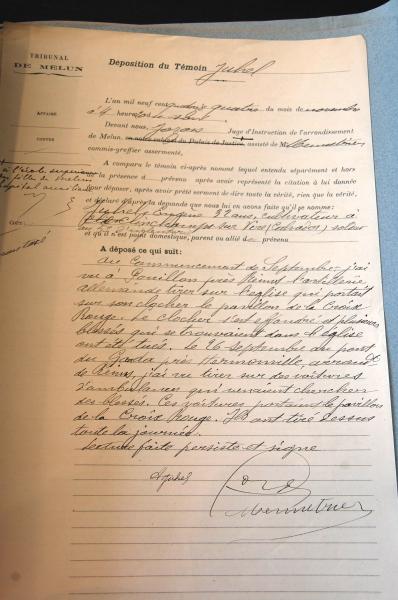 TRIBUNAL
DE MELUN
Déposition du Témoin Juhel
L'an mil neuf cent quatorze du mois de novembre
à 4 heures du soir
AFFAIRE
Devant nous Juge d'Instruction de l'arrondissement
de Melun, au Palais de Justice, assisté de M.
CONTRE
commis-greffier assermenté.
A comparu le témoin ci-après nommé lequel entendu séparément et hors
la présence d prévenu après avoir représenté la citation à lui donnée
pour déposer, après avoir prêté serment de dire toute la vérité, rien que la vérité,
et déclaré d'après la demande que nous lui en avons faite qu'il se nomme:
Juhel 32 ans, cultivateur à
sur Vire (Calvados)
et qu'il n'est point domestique, parent ou allié de prévenu
A déposé ce qui suit:
Au commencement de Septembre j'ai
vu à Pouillon près Reims l'artillerie
allemande tirer sur l'église qui portait
sur son clocher le pavillon de la Croix
Rouge. Le clocher s'est effondré et plusieurs
blessés qui se trouvaient dans l'église
ont été tués. Le 26 septembre au pont
du Godat près Hermonville,
de Reims, j'ai vu tirer sur des voitures
d'ambulance qui venaient chercher
des blessés. Ces voitures portaient le pavillon
de la Croix Rouge. Ils ont tiré dessus
toute la journée.
Lecture faite persiste et signe
AJuhel